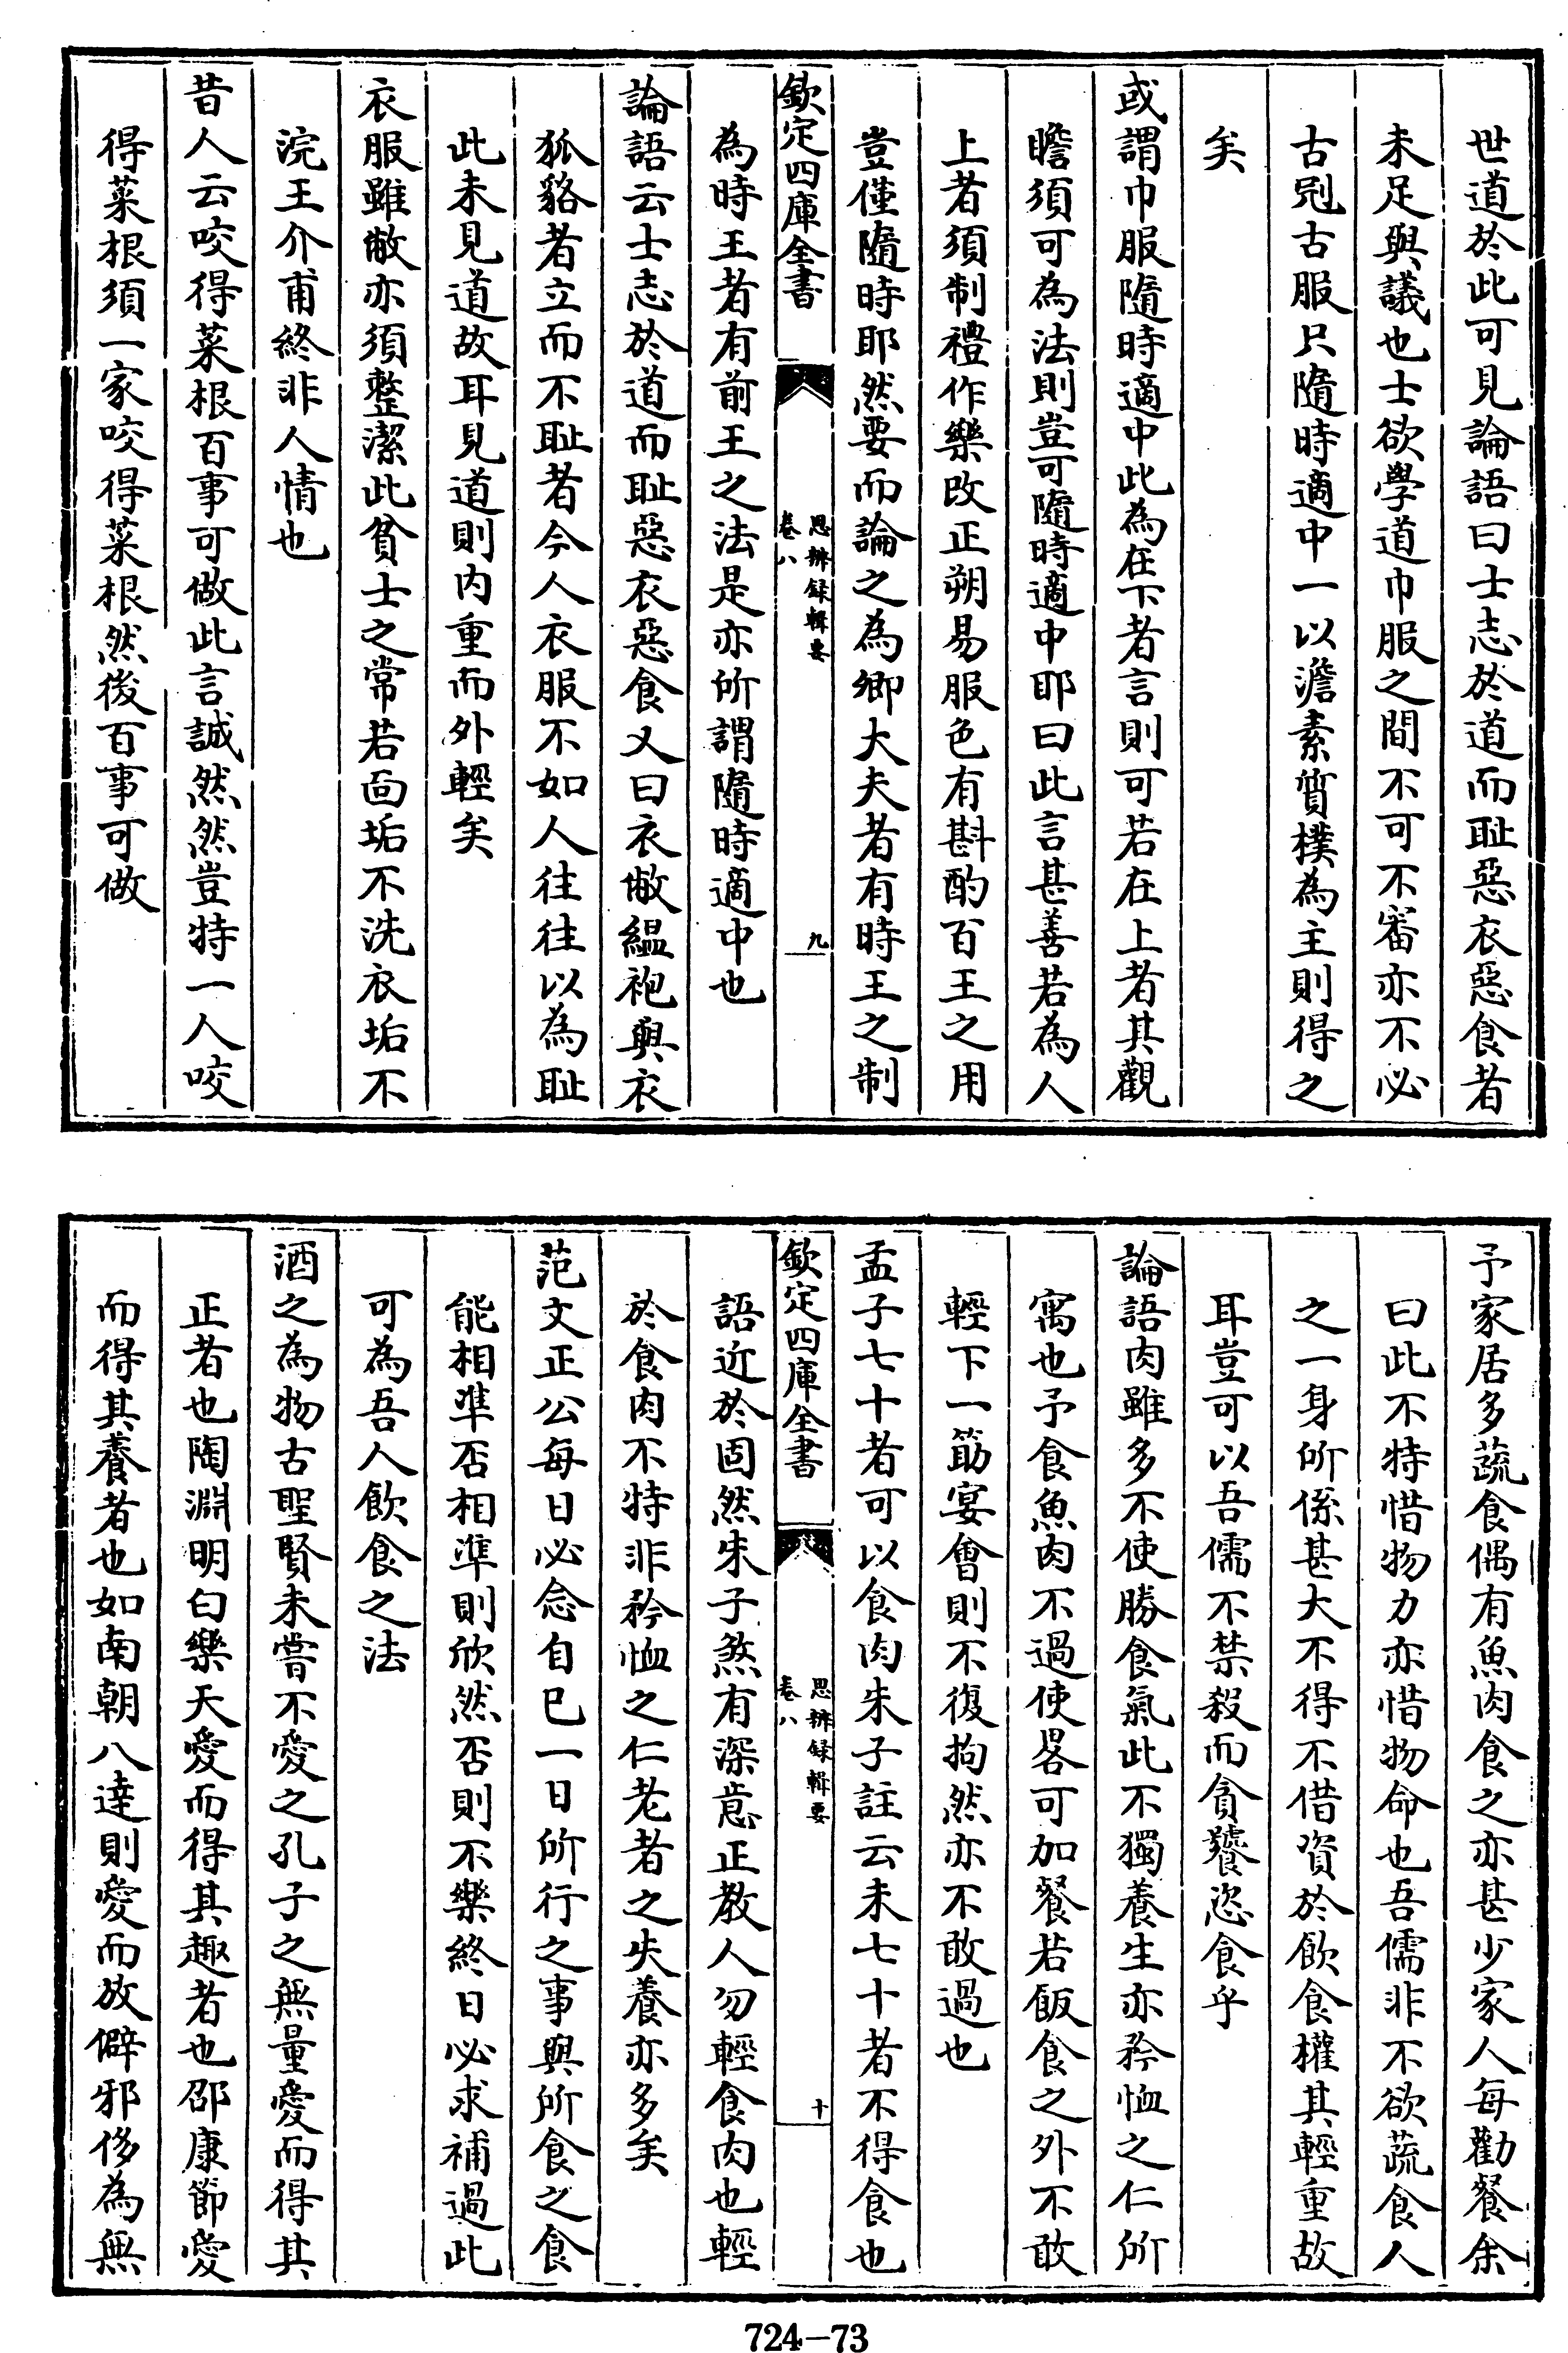 世道於此可見論語曰士志於道而耻惡衣惡食者
未足與議也士欲學道巾服之間不可不審亦不必
古冠古服只隨時適中一以澹素質樸為主則得之
矣
或謂巾服隨時適中此為在下者言則可若在上者其觀
瞻須可為法則豈可隨時適中耶曰此言甚善若為人
上者須制禮作樂改正朔易服色有斟酌百王之用
豈僅隨時耶然要而論之為卿大夫者有時王之制
欽定四庫全書
思辨録輯要
卷八
九
為時王者有前王之法是亦所謂隨時適中也
論語云士志於道而耻惡衣惡食又曰衣敝緼袍與衣
狐貉者立而不耻者今人衣服不如人往往以為耻
此未見道故耳見道則内重而外輕矣
衣服雖敝亦須整潔此貧士之常若面垢不洗衣垢不
浣王介甫終非人情也
昔人云咬得菜根百事可做此言誠然然豈特一人咬
得菜根須一家咬得菜根然後百事可做
予家居多蔬食偶有魚肉食之亦甚少家人每勸餐余
曰此不特惜物力亦惜物命也吾儒非不欲蔬食人
之一身所係甚大不得不借資於飲食權其輕重故
耳豈可以吾儒不禁殺而貪饕恣食乎
論語肉雖多不使勝食氣此不獨養生亦矜恤之仁所
寓也予食魚肉不過使畧可加餐若飯食之外不敢
輕下一筯宴會則不復拘然亦不敢過也
孟子七十者可以食肉朱子註云未七十者不得食也
欽定四庫全書
思辨録輯要
卷八
十
語近於固然朱子煞有深意正教人勿輕食肉也輕
於食肉不特非矜恤之仁老者之失養亦多矣
范文正公每日必念自已一日所行之事與所食之食
能相凖否相凖則欣然否則不樂終日必求補過此
可為吾人飲食之法
酒之為物古聖賢未嘗不愛之孔子之無量愛而得其
正者也陶淵明白樂天愛而得其趣者也邵康節愛
而得其養者也如南朝八達則愛而放僻邪侈為無
724-73